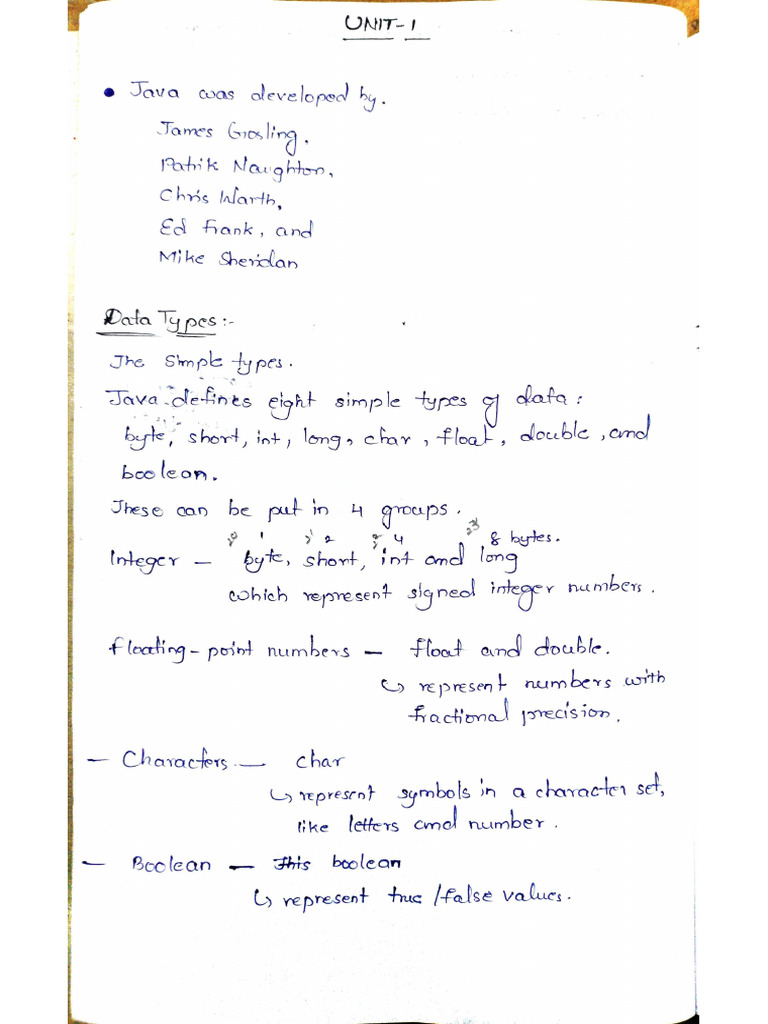 UNIT-1
• Java was developed by.
James Gosling.
Patrik Naughton,
Chris Warth,
Ed Frank, and
Mike Sheridan
Data Types:-
The Simple types.
Java defines eight simple types of data:
byte, short, int, long, char, float, double, and
boolean.
These can be put in 4 groups.
2⁰ 1 2¹ 2 2² 4 2³ 8 bytes.
Integer - byte, short, int and long
which represent signed integer numbers.
floating-point numbers - float and double.
↳ represent numbers with
fractional precision.
- Characters. - char
↳ represent symbols in a character set,
like letters and number.
- Boolean - This boolean
↳ represent true/false values.